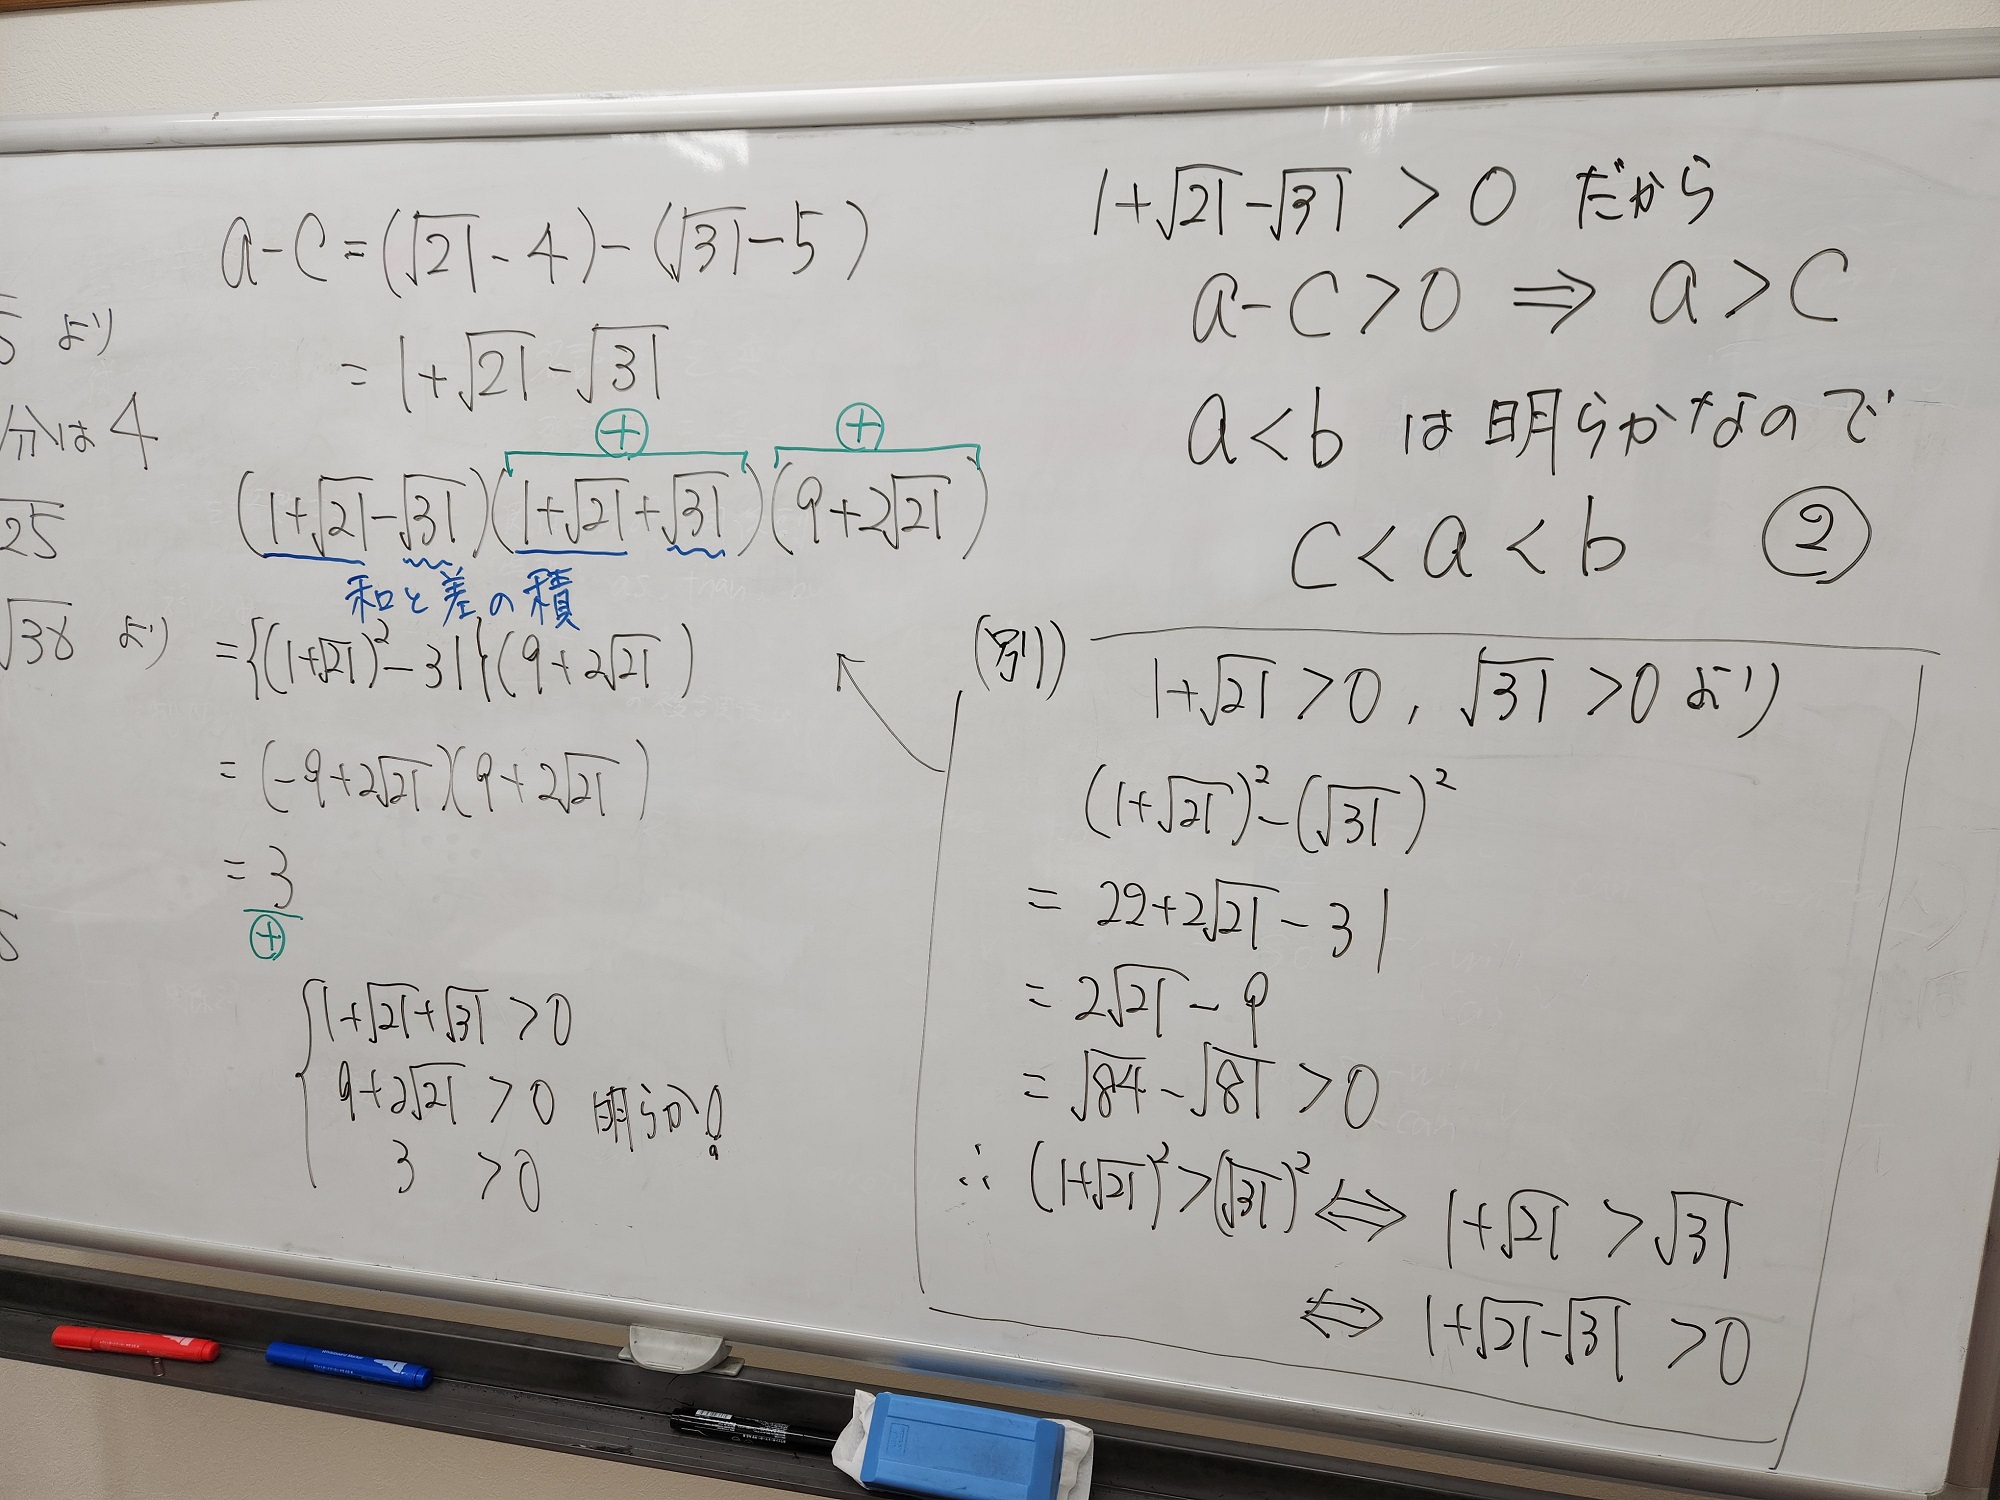 5 より
分は4
√25
√38 より
a-c=(√21-4)-(√31-5)
=1+√21-√31
⊕ ⊕
(1+√21-√31)(1+√21+√31)(9+2√21)
和と差の積
={(1+√21)²-31}(9+2√21)
=(-9+2√21)(9+2√21)
=3
⊕
1+√21+√31>0
9+2√21>0 明らか!
3>0
1+√21-√31>0 だから
a-c>0 ⇒ a>c
a<b は明らかなので
c<a<b ②
(別)
1+√21>0, √31>0 より
(1+√21)²-(√31)²
=22+2√21-31
=2√21-9
=√84-√81>0
∴ (1+√21)²>(√31)² ⇔ 1+√21>√31
⇔ 1+√21-√31>0